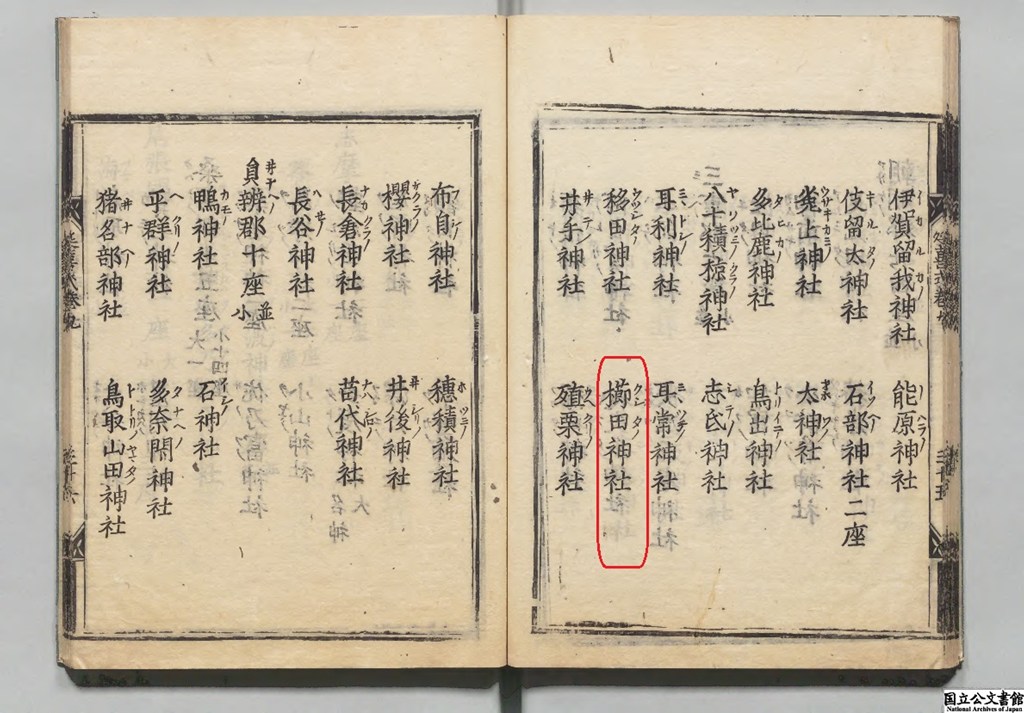 伊賀留我神社
能原神社
伎留太神社
石部神社二座
兎上神社
太神社
多比鹿神社
鳥出神社
八十積椋神社
志氐神社
耳利神社
耳常神社
移田神社
櫛田神社
井手神社
殖栗神社
布自神社
穗積神社
櫻神社
井後神社
長倉神社
苗代神社
長谷神社
員辨郡十座 並小
鴨神社
石神社
平群神社
多奈閇神社
猪名部神社
鳥取山田神社
国立公文書館
National Archives of Japan